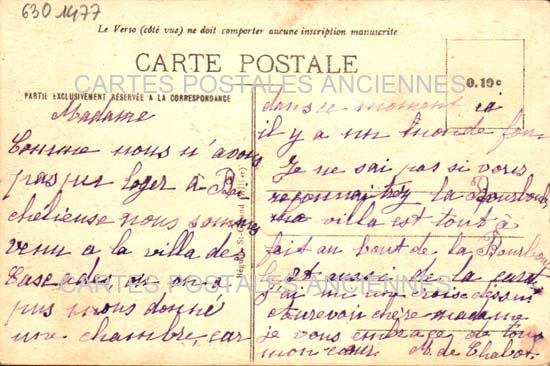 6301477
Le Verso (côté vue) ne doit comporter aucune inscription manuscrite
CARTE POSTALE
0.10c
CARTES POSTALES ANCIENNES
PARTIE EXCLUSIVEMENT RÉSERVÉE A LA CORRESPONDANCE
Madame
Comme nous n'avons
pas pu loger à
nous sommes
venu a la villa des
Cascades on nous
donné
une chambre, car
dans ce moment ci
il y a un monde fou
Je ne sai pas si vous
la Bourboule
villa est tout à
fait au bout de la Bourboule
de la
J'ai mi une croix dessu
Aurevoir chère madame
je vous embrase de tout
mon cœur M. de Chabot
CARTES POSTALES ANCIENNES